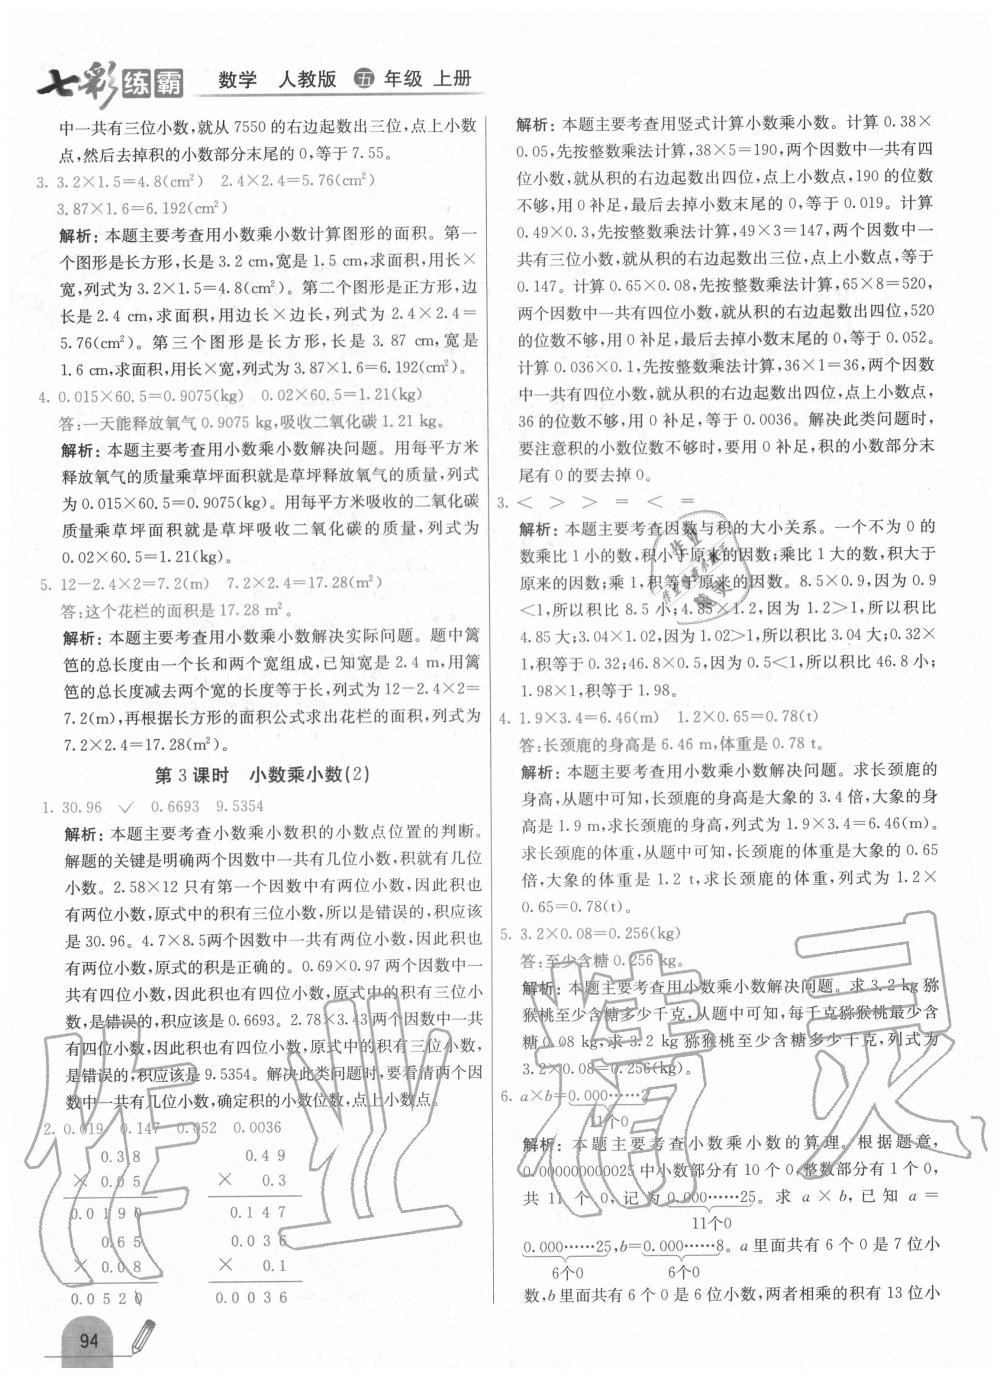 七彩练霸 数学 人教版 五年级 上册
中一共有三位小数,就从 7550 的右边起数出三位,点上小数
点,然后去掉积的小数部分末尾的 0,等于 7.55。
3. 3.2×1.5=4.8(cm²) 2.4×2.4=5.76(cm²)
3.87×1.6=6.192(cm²)
解析: 本题主要考查用小数乘小数计算图形的面积。第一
个图形是长方形,长是 3.2 cm,宽是 1.5 cm,求面积,用长×
宽,列式为 3.2×1.5=4.8(cm²)。第二个图形是正方形,边
长是 2.4 cm,求面积,用边长×边长,列式为 2.4×2.4=
5.76(cm²)。第三个图形是长方形,长是 3.87 cm,宽是
1.6 cm,求面积,用长×宽,列式为 3.87×1.6=6.192(cm²)。
4. 0.015×60.5=0.9075(kg) 0.02×60.5=1.21(kg)
答:一天能释放氧气 0.9075 kg,吸收二氧化碳 1.21 kg。
解析: 本题主要考查用小数乘小数解决问题。用每平方米
释放氧气的质量乘草坪面积就是草坪释放氧气的质量,列式
为 0.015×60.5=0.9075(kg)。用每平方米吸收的二氧化碳
质量乘草坪面积就是草坪吸收二氧化碳的质量,列式为
0.02×60.5=1.21(kg)。
5. 12-2.4×2=7.2(m) 7.2×2.4=17.28(m²)
答:这个花栏的面积是 17.28 m²。
解析: 本题主要考查用小数乘小数解决实际问题。题中篱
笆的总长度由一个长和两个宽组成,已知宽是 2.4 m,用篱
笆的总长度减去两个宽的长度等于长,列式为 12-2.4×2=
7.2(m),再根据长方形的面积公式求出花栏的面积,列式为
7.2×2.4=17.28(m²)。
第 3 课时 小数乘小数(2)
1. 30.96 ✓ 0.6693 9.5354
解析: 本题主要考查小数乘小数积的小数点位置的判断。
解题的关键是明确两个因数中一共有几位小数,积就有几位
小数。2.58×12 只有第一个因数中有两位小数,因此积也
有两位小数,原式中的积有三位小数,所以是错误的,积应该
是 30.96。4.7×8.5两个因数中一共有两位小数,因此积也
有两位小数,原式的积是正确的。0.69×0.97 两个因数中一
共有四位小数,因此积也有四位小数,原式中的积有三位小
数,是错误的,积应该是 0.6693。2.78×3.43两个因数中一共
有四位小数,因此积也有四位小数,原式中的积有三位小数,
是错误的,积应该是 9.5354。解决此类问题时,要看清两个因
数中一共有几位小数,确定积的小数位数,点上小数点。
2. 0.019 0.147 0.052 0.0036
0.38 0.49
× 0.05 × 0.3
0.0190 0.147
0.65 0.036
× 0.08 × 0.1
0.0520 0.0036
94
解析: 本题主要考查用竖式计算小数乘小数。计算 0.38×
0.05,先按整数乘法计算,38×5=190,两个因数中一共有四
位小数,就从积的右边起数出四位,点上小数点,190 的位数
不够,用 0 补足,最后去掉小数末尾的 0,等于 0.019。计算
0.49×0.3,先按整数乘法计算,49×3=147,两个因数中一
共有三位小数,就从积的右边起数出三位,点上小数点,等于
0.147。计算 0.65×0.08,先按整数乘法计算,65×8=520,
两个因数中一共有四位小数,就从积的右边起数出四位,520
的位数不够,用 0 补足,最后去掉小数末尾的 0,等于 0.052。
计算 0.036×0.1,先按整数乘法计算,36×1=36,两个因
数中一共有四位小数,就从积的右边起数出四位,点上小数点,
36 的位数不够,用 0 补足,等于 0.0036。解决此类问题时,
要注意积的小数位数不够时,要用 0 补足,积的小数部分末
尾有 0 的要去掉 0。
3. < > > = < =
解析: 本题主要考查因数与积的大小关系。一个不为 0 的
数乘比 1 小的数,积小于原来的因数;乘比 1 大的数,积大于
原来的因数;乘 1,积等于原来的因数。8.5×0.9,因为 0.9
<1,所以积比 8.5 小;4.85×1.2,因为 1.2>1,所以积比
4.85 大;3.04×1.02,因为 1.02>1,所以积比 3.04 大;0.32×
1,积等于 0.32;46.8×0.5,因为 0.5<1,所以积比 46.8 小;
1.98×1,积等于 1.98。
4. 1.9×3.4=6.46(m) 1.2×0.65=0.78(t)
答:长颈鹿的身高是 6.46 m,体重是 0.78 t。
解析: 本题主要考查用小数乘小数解决问题。求长颈鹿的
身高,从题中可知,长颈鹿的身高是大象的 3.4 倍,大象的身
高是 1.9 m,求长颈鹿的身高,列式为 1.9×3.4=6.46(m)。
求长颈鹿的体重,从题中可知,长颈鹿的体重是大象的 0.65
倍,大象的体重是 1.2 t,求长颈鹿的体重,列式为 1.2×
0.65=0.78(t)。
5. 3.2×0.08=0.256(kg)
答:至少含糖 0.256 kg。
解析: 本题主要考查用小数乘小数解决问题。求 3.2 kg 猕
猴桃至少含糖多少千克,从题中可知,每千克猕猴桃最少含
糖 0.08 kg,求 3.2 kg 猕猴桃至少含糖多少千克,列式为
3.2×0.08=0.256(kg)。
6. a×b=0.000……2
11个0
解析: 本题主要考查小数乘小数的算理。根据题意,
0.000000000025 中小数部分有 10 个 0,整数部分有 1 个 0,
共 11 个 0,记为 0.000……25。求 a×b,已知 a=
11个0
0.000……25,b=0.000……8。a 里面共有 6 个 0 是 7 位小
6个0 6个0
数,b 里面共有 6 个 0 是 6 位小数,两者相乘的积有 13 位小
作业精灵